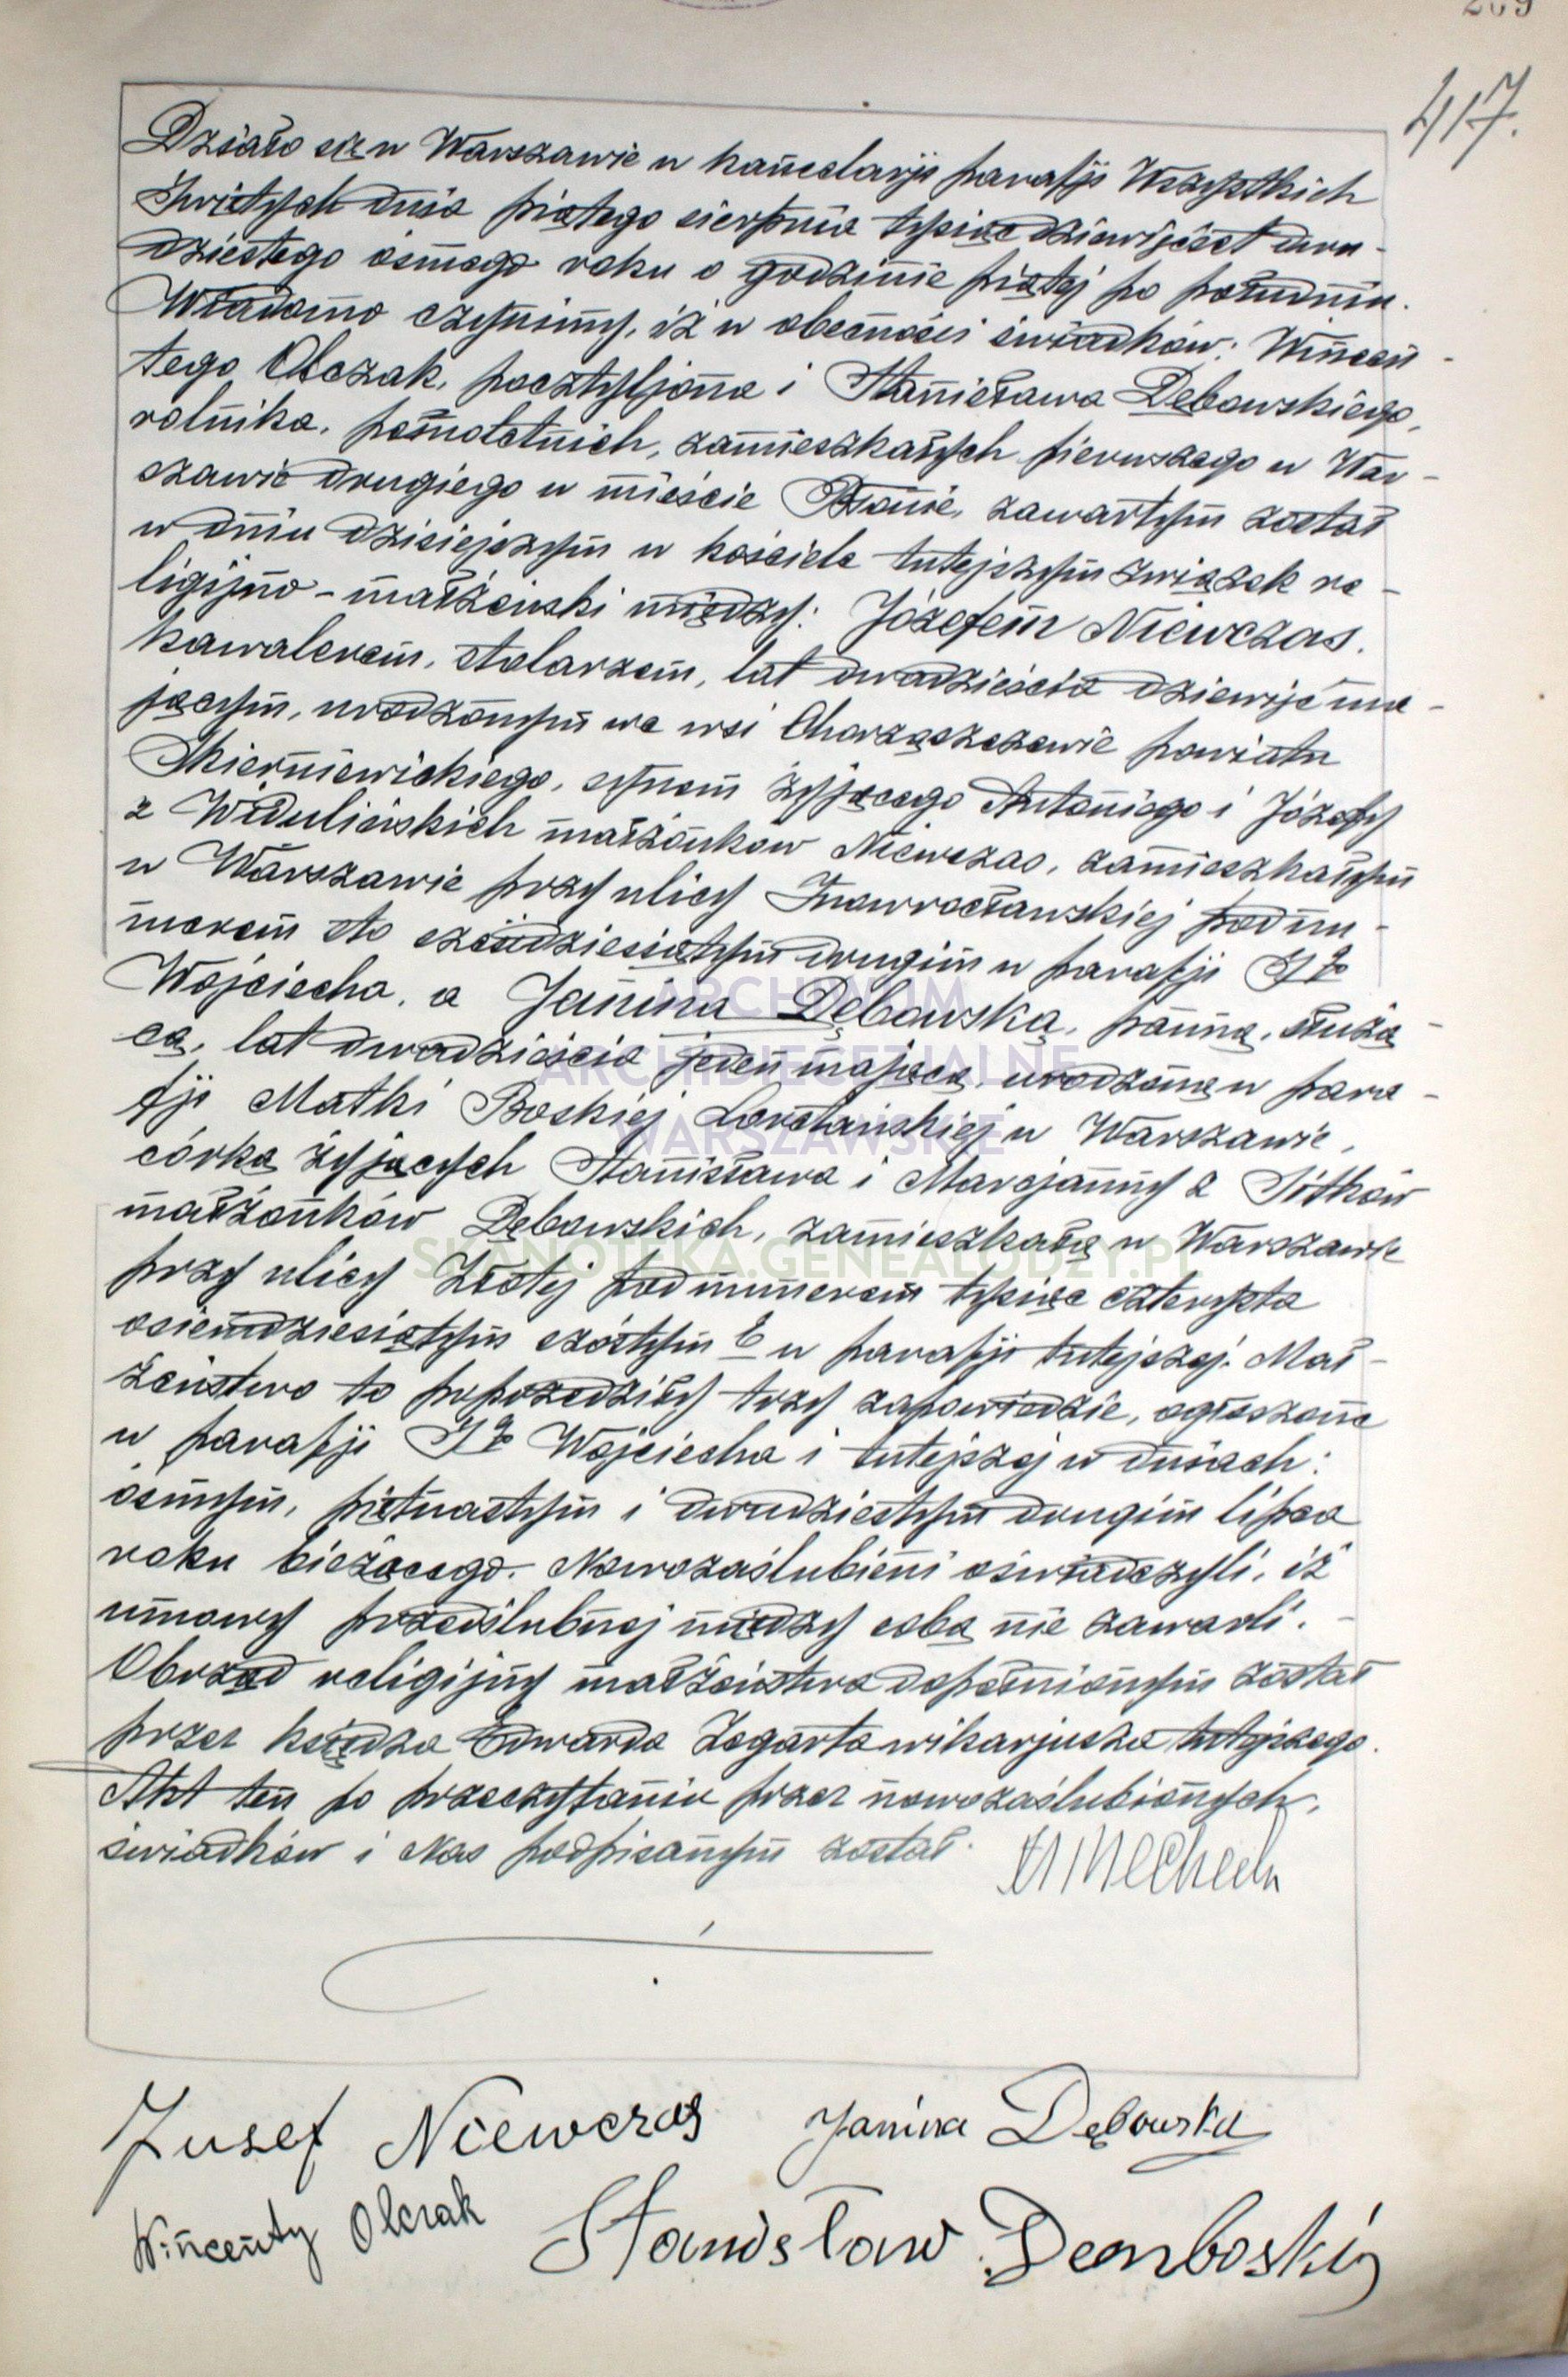 209
417.
Działo się w Warszawie w kancelarji parafji Wszystkich
Świętych dnia piątego sierpnia tysiąc dziewięćset dwu-
dziestego ósmego roku o godzinie piątej po południu.
Wiadomo czynimy, iż w obecności świadków: Wincen-
tego Olczak, pocztyljona i Stanisława Dębowskiego,
rolnika, pełnoletnich, zamieszkałych pierwszego w War-
szawie drugiego w mieście Błonie, zawartym został
w dniu dzisiejszym w kościele tutejszym związek re-
ligijno-małżeński między: Józefem Niewczas,
kawalerem, stolarzem, lat dwadzieścia dziewięć ma-
jącym, urodzonym we wsi Chorzęszczewie powiatu
Skierniewickiego, synem żyjącego Antoniego i Józefy
z Widulińskich małżonków Niewczas, zamieszkałym
w Warszawie przy ulicy Inowrocławskiej pod nu-
merem sto sześćdziesiątym drugim w parafji Sgo
Wojciecha, a Janiną Dębowską, panną, służą-
cą, lat dwadzieścia jeden mającą, urodzoną w para-
fji Matki Boskiej Loretańskiej w Warszawie,
córką żyjących Stanisława i Marcjanny z Sitków
małżonków Dębowskich, zamieszkałą w Warszawie
przy ulicy Złotej pod numerem tysiąc czterysta
osiemdziesiątym szóstym E w parafji tutejszej. Mał-
żeństwo to poprzedziły trzy zapowiedzie, ogłoszone
w parafji Sgo Wojciecha i tutejszej w dniach:
ósmym, piętnastym i dwudziestym drugim lipca
roku bieżącego. Nowozaślubieni oświadczyli, iż
umowy przedślubnej między sobą nie zawarli.
Obrząd religijny małżeństwa dopełnionym został
przez księdza Edwarda Zegarta wikarjusza tutejszego.
Akt ten po przeczytaniu przez nowozaślubionych,
świadków i Nas podpisanym został.
Jusef Niewczas Janina Dębowska
Wincenty Olczak Stanisław Demboski
ARCHIWUM
ARCHIDIECEZJALNE
WARSZAWSKIE
SKANOTEKA.GENEALODZY.PL